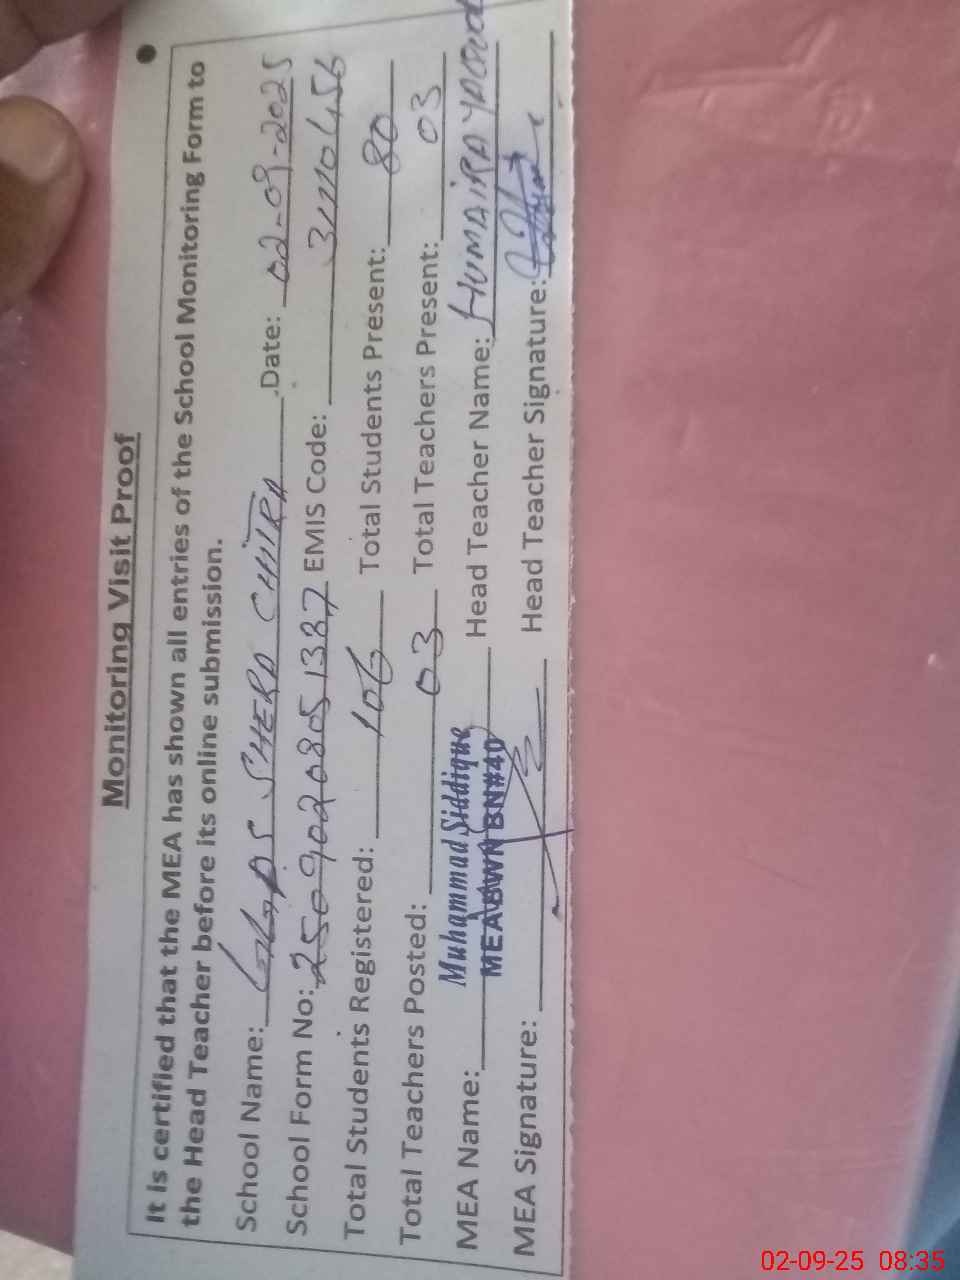 Monitoring Visit Proof
It is certified that the MEA has shown all entries of the School Monitoring Form to
the Head Teacher before its online submission.
School Name: GGPS SHERA CHITRA Date: 02-09-2025
School Form No: 25090208051387 EMIS Code: 31110456
Total Students Registered: 106 Total Students Present: 80
Total Teachers Posted: 03 Total Teachers Present: 03
MEA Name: Muhammad Siddique Head Teacher Name: HUMAIRA
MEA BWN BN#40
MEA Signature: Head Teacher Signature:
02-09-25 08:35